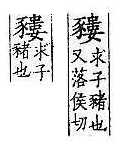 䝏
求子豬也
又落侯切
䝏
求子
豬也